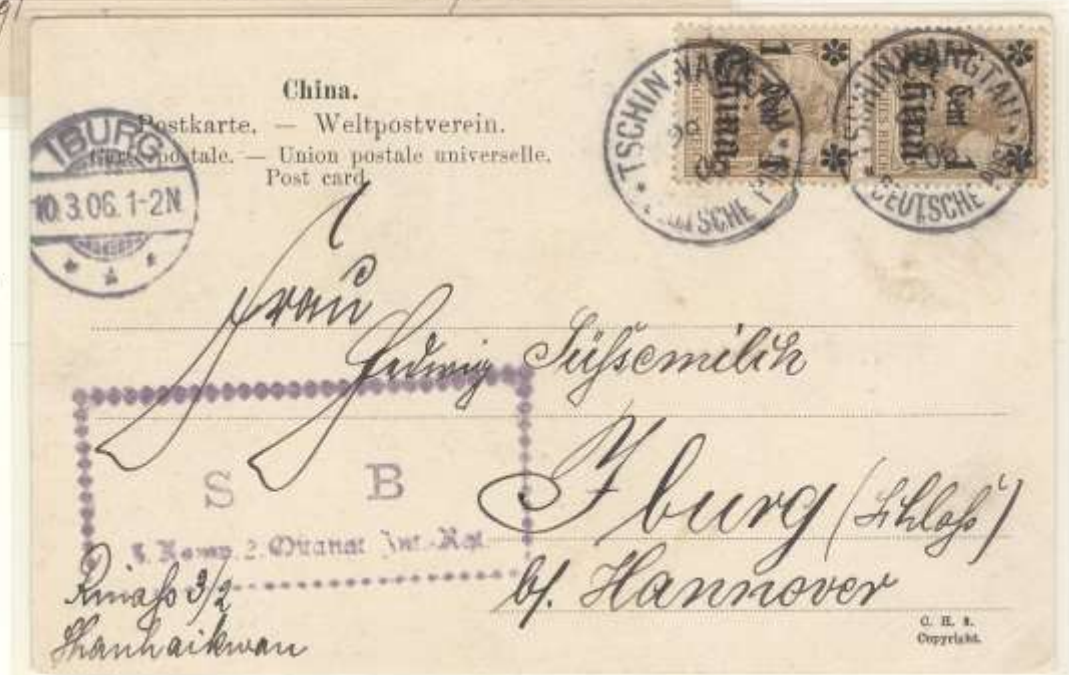 China.
Postkarte. — Weltpostverein.
Carte postale. — Union postale universelle.
Post card.
IBURG
10.3.06.1-2N
TSCHINWANGTAU
DEUTSCHE
1 Cent 1
China
TSCHINWANGTAU
DEUTSCHE
1 Cent 1
China
Frau
Hedwig Süssemilch
Iburg (Schloss)
b/. Hannover
S B
Komp. 2. Ostasiat. Inf.-Rgt.
3/2
Shanhaikwan
C. H. 8.
Copyright.